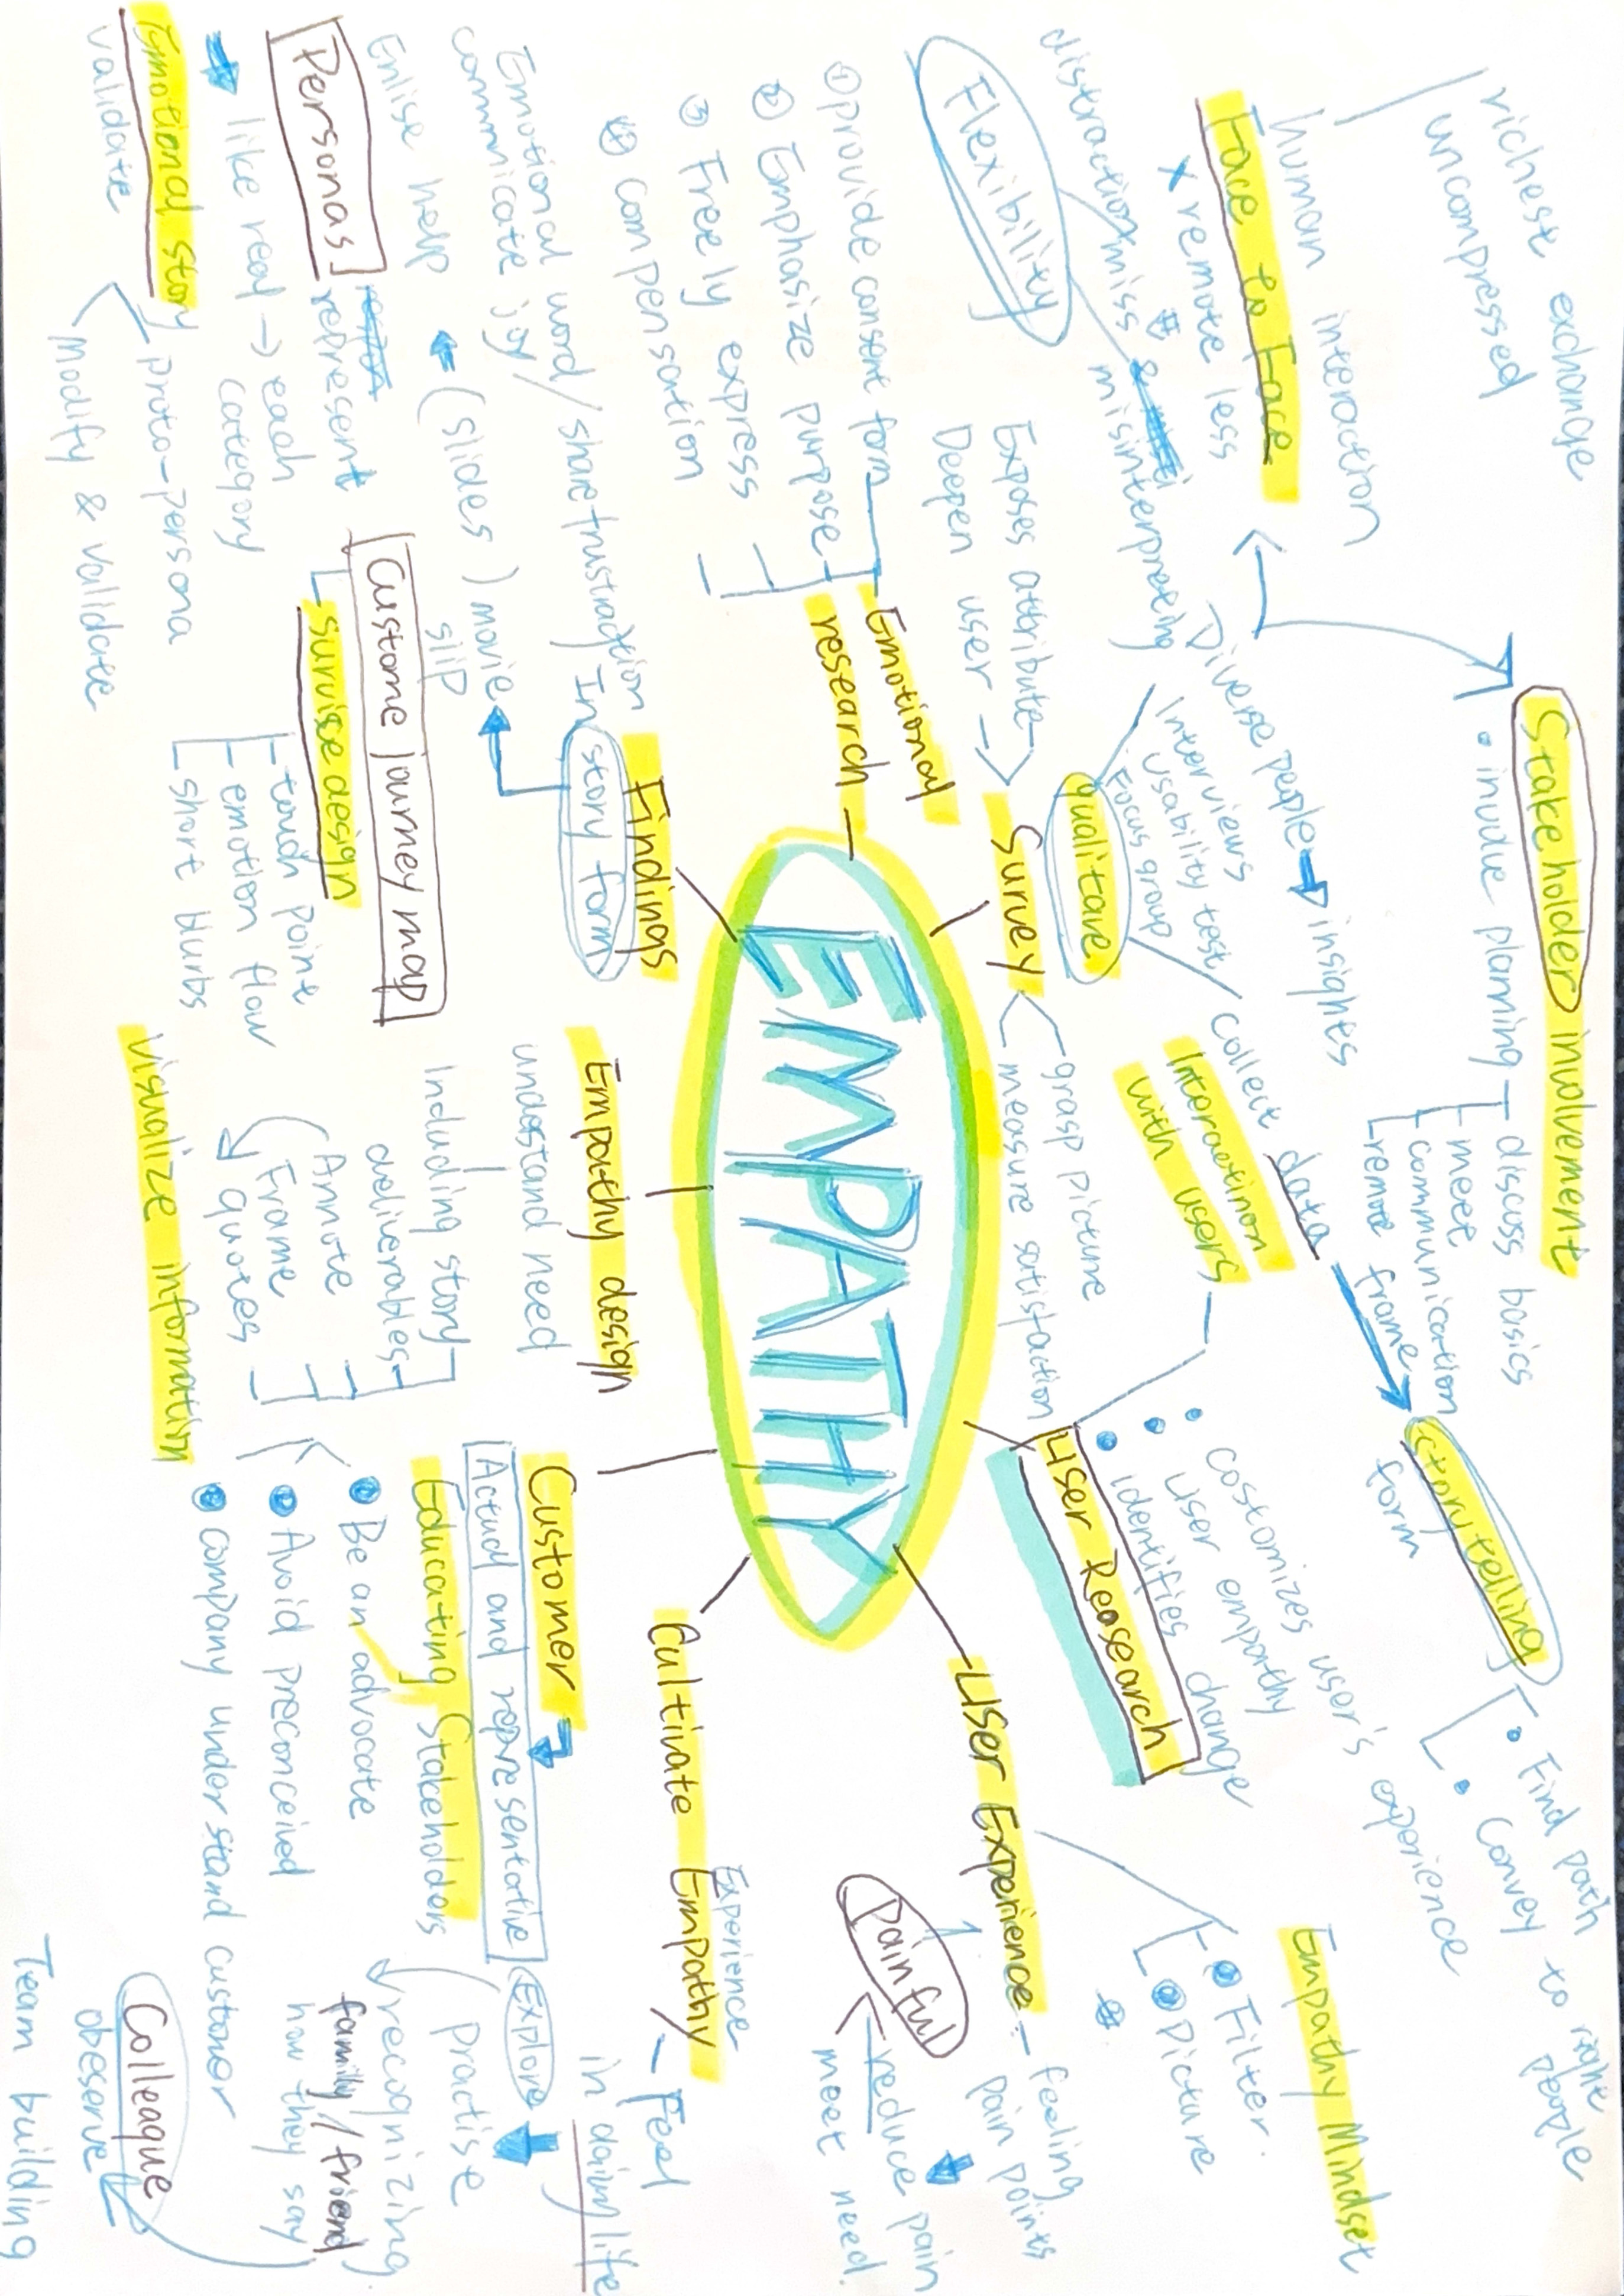 EMPATHY
richest exchange
uncompressed
human interaction
Face to Face
x remote less
distraction/miss & misinterpreting
Flexibility
Stakeholder involvement
• invove planning
discuss basics
meet
communication
remote frame
Diverse people → insights
Interviews
Usability test
Focus group
qualitave
collect data
story telling
form
• Find path to right people
• Convey
Interaction
with users
• costomizes user's experience
• user empathy
• identifies change
User Reasearch
Survey
grasp picture
measure satisfaction
Exposes attribute
Deepen user
Emotional
research
① provide consent form
② Emphasize purpose
③ Freely express
④ compensation
User Experience
feeling
pain points
Painful
reduce pain
meet need.
Empathy Mindset
• Filter.
• picture
Findings
In story form
Emotional word / share frustraction
communicate joy/
Enlise help
← (slides) movie
Personas
represent
like real → each
category
Emotional story
validate
proto-persona
Modify & validate
Custome journey map
survise design
touch point
emotion flow
short blurbs
Empathy design
undostand need
Including story
deliverables
Annote
Frame
quotes
visualize information
Customer
Actual and representative
Educating Stakeholders
• Be an advocate
• Avoid preconceived
• company understand customer
Cultivate Empathy
Experience
Feel
in dainy life
Explore
practise
recognizing
family/friend
how they say
Colleaque
obeserve
Team building